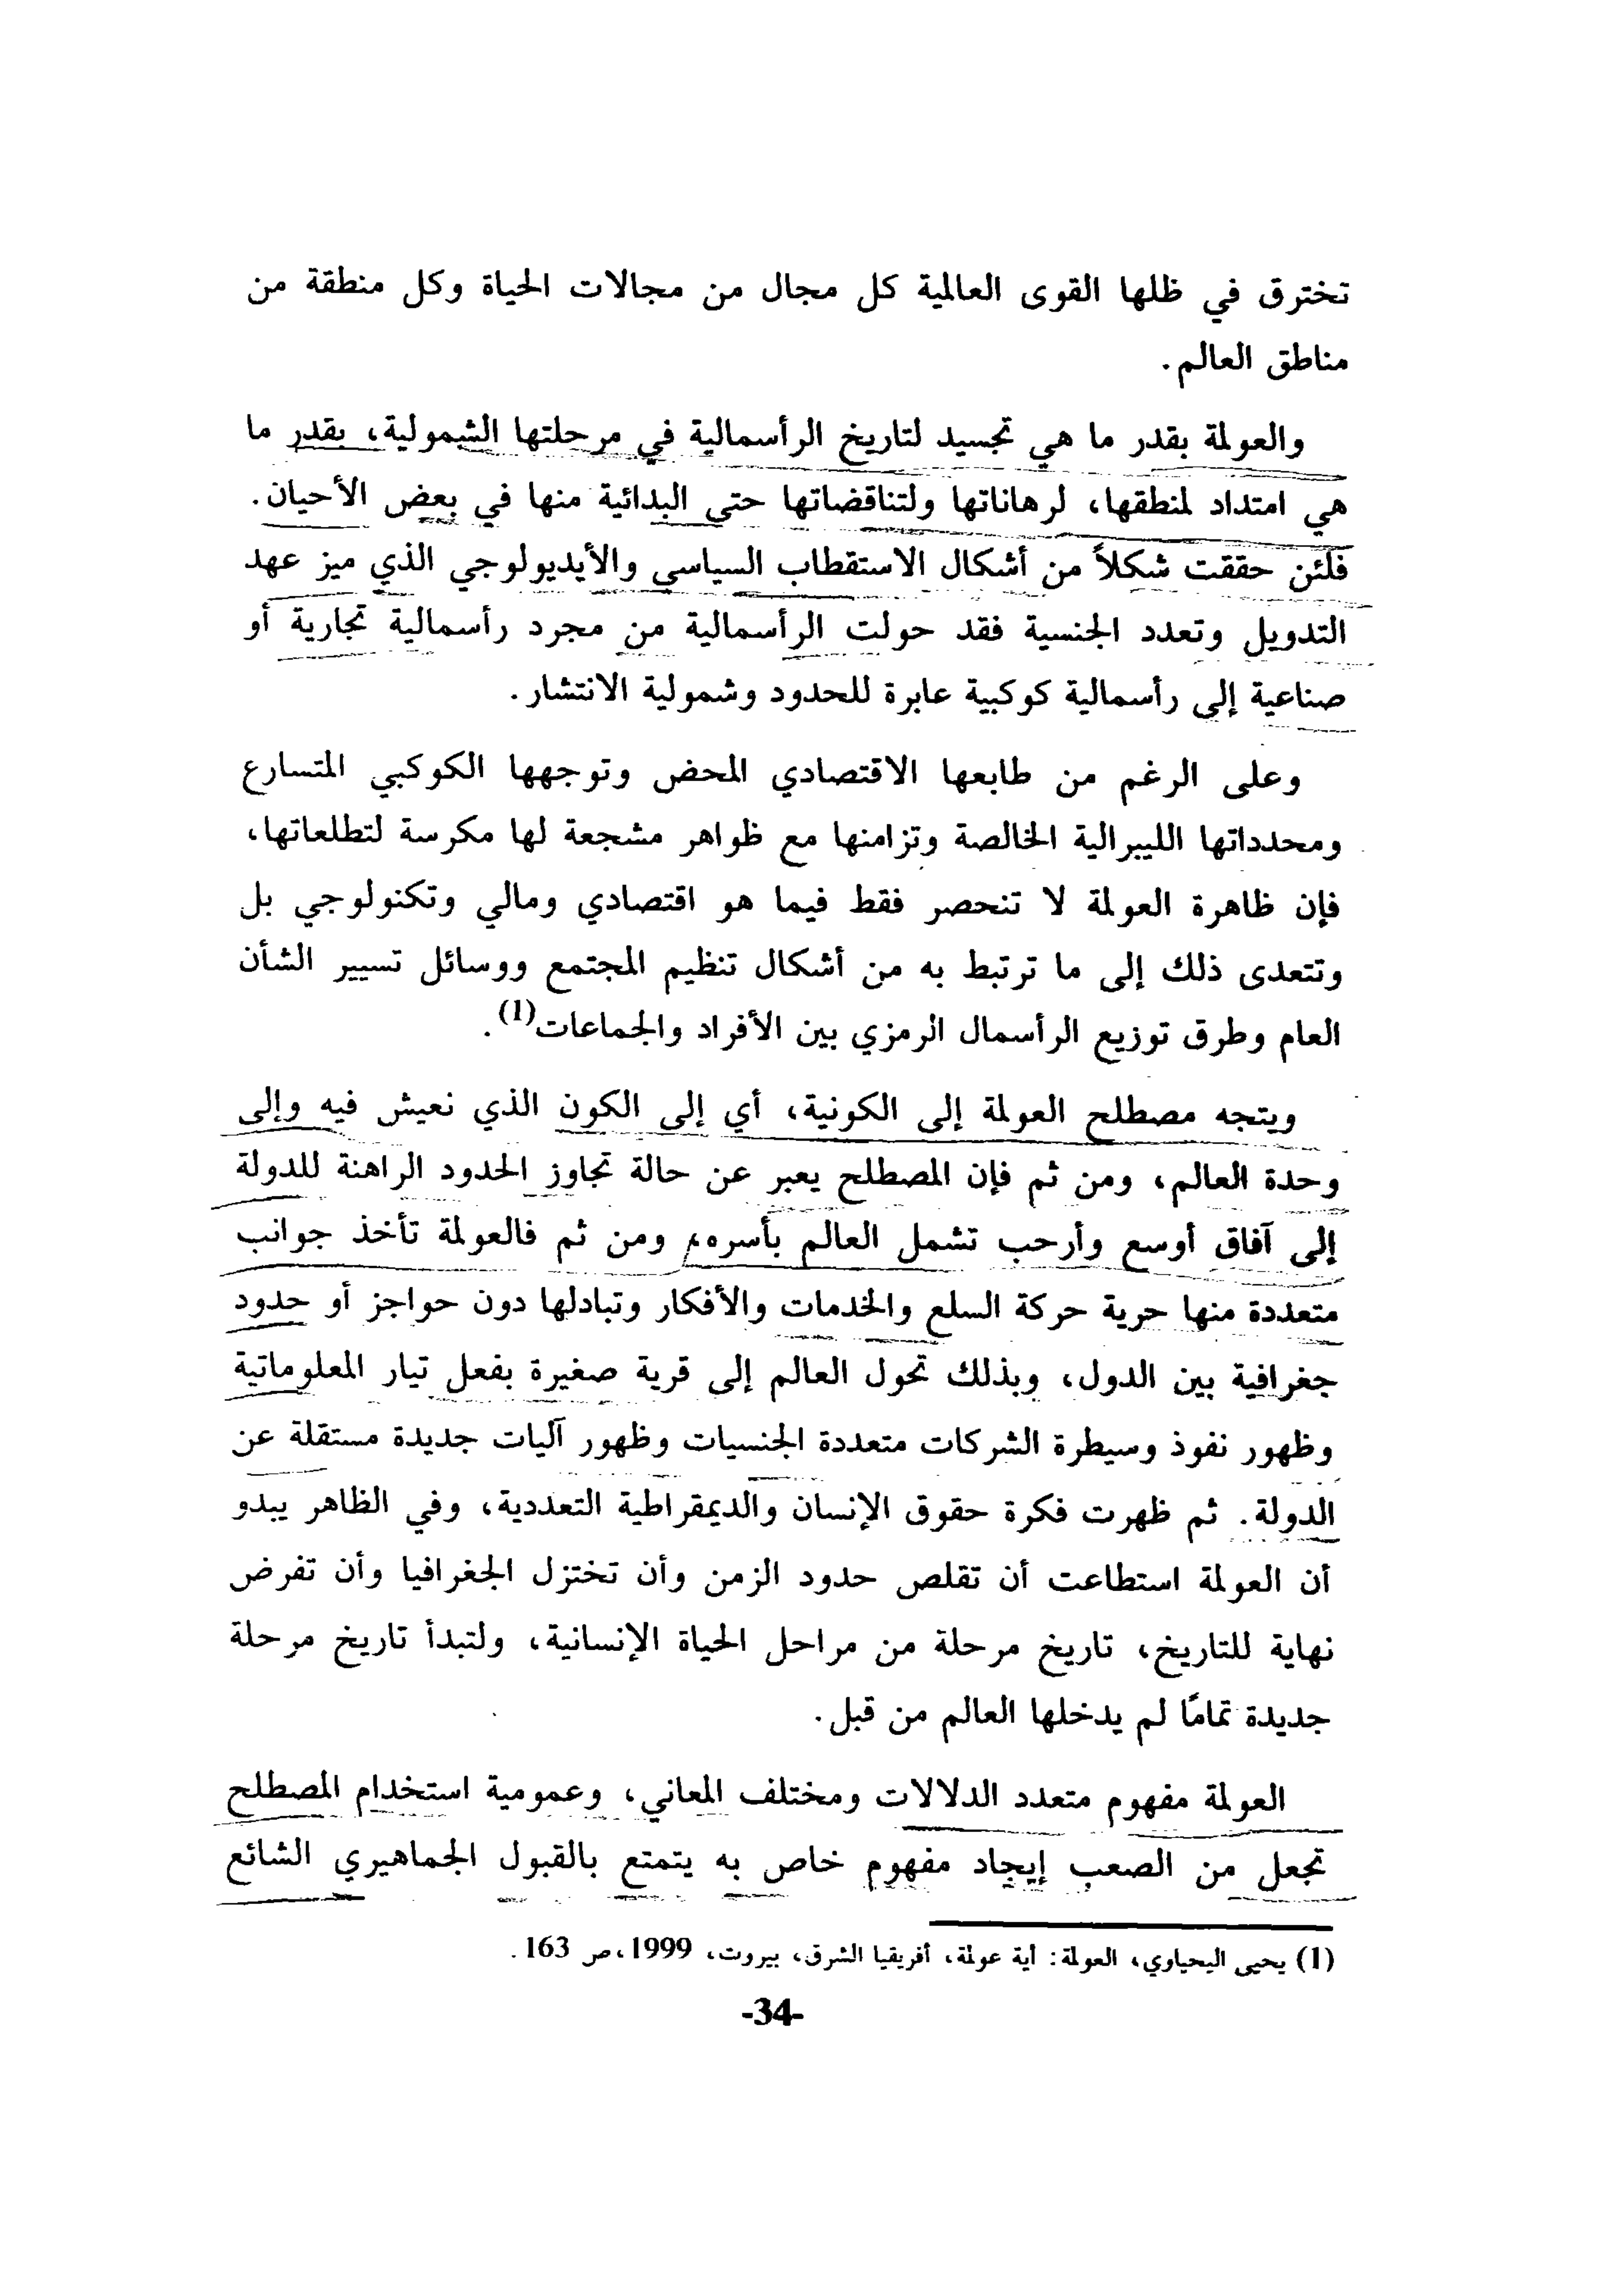 تخترق في ظلها القوى العالمية كل مجال من مجالات الحياة وكل منطقة من
مناطق العالم.
والعولمة بقدر ما هي تجسيد لتاريخ الرأسمالية في مرحلتها الشمولية، بقدر ما
هي امتداد لمنطقها، لرهاناتها ولتناقضاتها حتى البدائية منها في بعض الأحيان.
فلئن حققت شكلاً من أشكال الاستقطاب السياسي والأيديولوجي الذي ميز عهد
التدويل وتعدد الجنسية فقد حولت الرأسمالية من مجرد رأسمالية تجارية أو
صناعية إلى رأسمالية كوكبية عابرة للحدود وشمولية الانتشار.
وعلى الرغم من طابعها الاقتصادي المحض وتوجهها الكوكبي المتسارع
ومحدداتها الليبرالية الخالصة وتزامنها مع ظواهر مشجعة لها مكرسة لتطلعاتها،
فإن ظاهرة العولمة لا تنحصر فقط فيما هو اقتصادي ومالي وتكنولوجي بل
وتتعدى ذلك إلى ما ترتبط به من أشكال تنظيم المجتمع ووسائل تسيير الشأن
العام وطرق توزيع الرأسمال الرمزي بين الأفراد والجماعات(1).
ويتجه مصطلح العولمة إلى الكونية، أي إلى الكون الذي نعيش فيه وإلى
وحدة العالم، ومن ثم فإن المصطلح يعبر عن حالة تجاوز الحدود الراهنة للدولة
إلى آفاق أوسع وأرحب تشمل العالم بأسره، ومن ثم فالعولمة تأخذ جوانب
متعددة منها حرية حركة السلع والخدمات والأفكار وتبادلها دون حواجز أو حدود
جغرافية بين الدول، وبذلك تحول العالم إلى قرية صغيرة بفعل تيار المعلوماتية
وظهور نفوذ وسيطرة الشركات متعددة الجنسيات وظهور آليات جديدة مستقلة عن
الدولة. ثم ظهرت فكرة حقوق الإنسان والديمقراطية التعددية، وفي الظاهر يبدو
أن العولمة استطاعت أن تقلص حدود الزمن وأن تختزل الجغرافيا وأن تفرض
نهاية للتاريخ، تاريخ مرحلة من مراحل الحياة الإنسانية، ولتبدأ تاريخ مرحلة
جديدة تمامًا لم يدخلها العالم من قبل.
العولمة مفهوم متعدد الدلالات ومختلف المعاني، وعمومية استخدام المصطلح
تجعل من الصعب إيجاد مفهوم خاص به يتمتع بالقبول الجماهيري الشائع
(1) يحيى اليحياوي، العولمة: أية عولمة، أفريقيا الشرق، بيروت، 1999،ص 163.
-34-